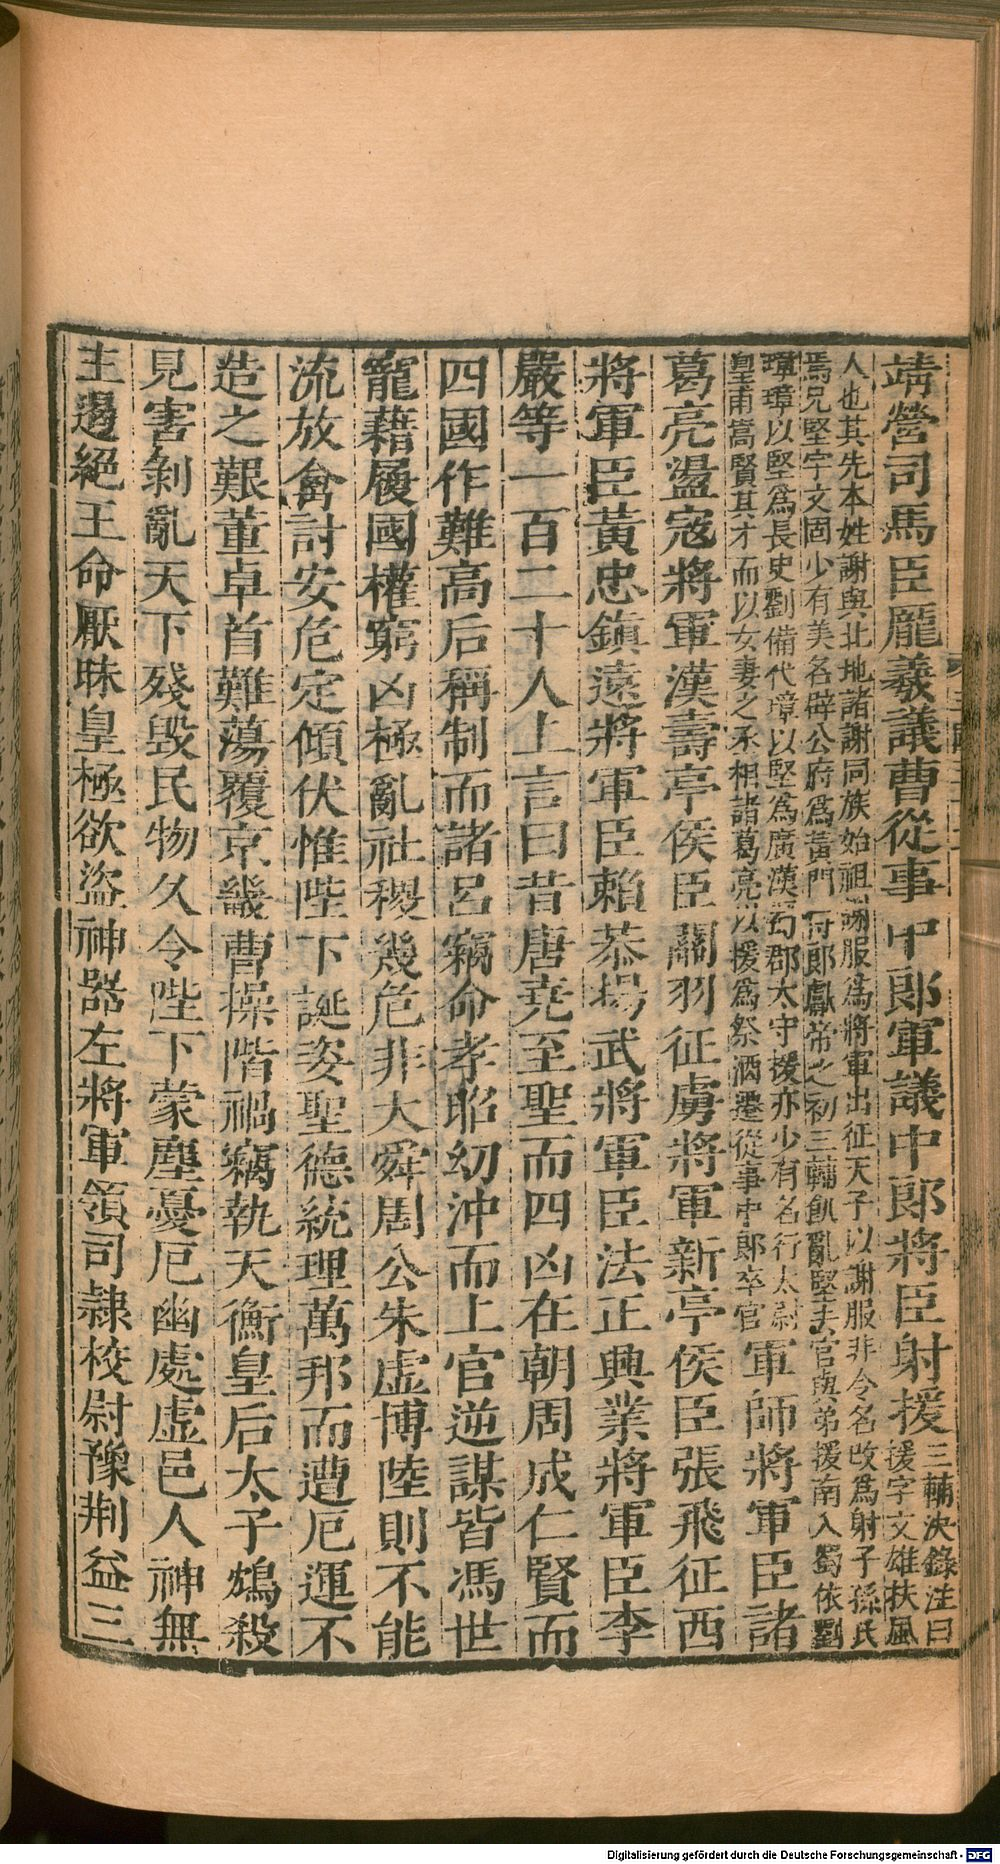 靖營司馬臣龐羲議曹從事中郎軍議中郎將臣射援三輔决錄注曰
援字文雄扶風
人也其先本姓謝與北地諸謝同族始祖謝服爲將軍出征天子以謝服非令名改爲射子孫氏
焉兄堅字文固少有美名辟公府爲黃門侍郎獻帝之初三輔飢亂堅去官與弟援南入蜀依劉
璋璋以堅爲長史劉備代璋以堅爲廣漢蜀郡太守援亦少有名行太尉
皇甫嵩賢其才而以女妻之丞相諸葛亮以援爲祭酒遷從事中郎卒官軍師將軍臣諸
葛亮盪寇將軍漢壽亭侯臣關羽征虜將軍新亭侯臣張飛征西
將軍臣黃忠鎭遠將軍臣賴恭揚武將軍臣法正興業將軍臣李
嚴等一百二十人上言曰昔唐堯至聖而四凶在朝周成仁賢而
四國作難高后稱制而諸呂竊命孝昭幼沖而上官逆謀皆馮世
寵藉履國權窮凶極亂社稷幾危非大舜周公朱虛博陸則不能
流放禽討安危定傾伏惟陛下誕姿聖德統理萬邦而遭厄運不
造之艱董卓首難蕩覆京畿曹操階禍竊執天衡皇后太子鴆殺
見害剝亂天下殘毀民物久令陛下蒙塵憂厄幽處虛邑人神無
主遏絕王命厭昧皇極欲盜神器左將軍領司隷校尉豫荆益三
Digitalisierung gefördert durch die Deutsche Forschungsgemeinschaft - DFG